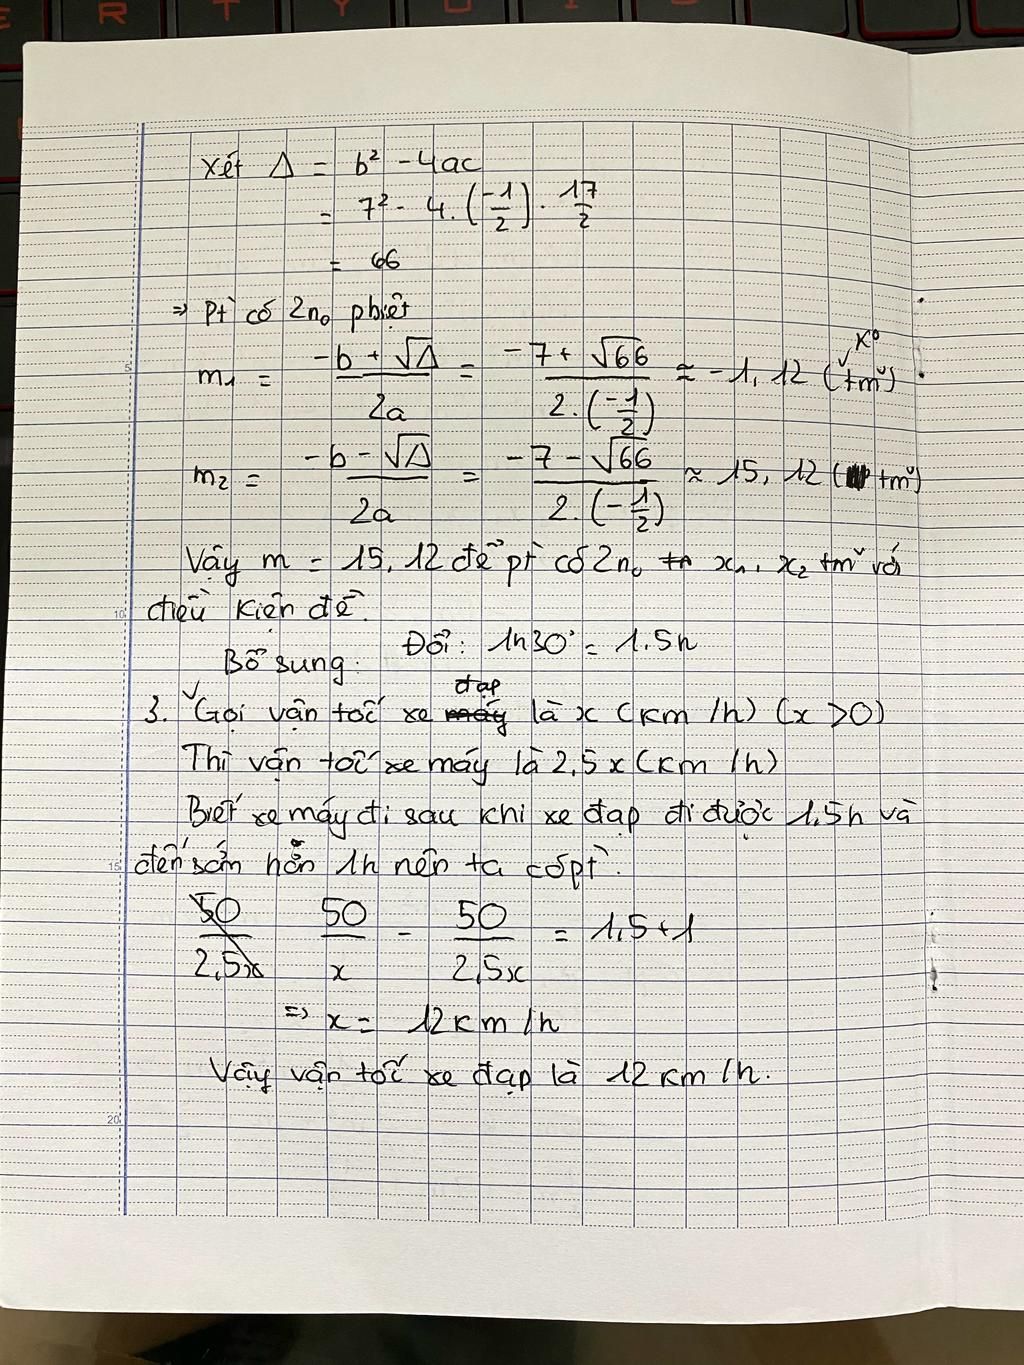 E R T Y U I
Xét Δ = b² - 4ac
= 7² - 4.(-1/2).17/2
= 66
⇒ Pt có 2n₀ pbiệt
K⁰
m₁ = (-b + √Δ)/2a = (-7 + √66)/(2.(-1/2)) ≈ -1,12 (tmᵛ)
m₂ = (-b - √Δ)/2a = (-7 - √66)/(2.(-1/2)) ≈ 15,12 (tmᵛ)
Vậy m = 15,12 để pt có 2n₀ x₁, x₂ tmᵛ với
điều kiện đề.
Bổ sung: Đổi: 1h30' = 1.5h
đạp
3. Gọi vận tốc xe máy là x (km/h) (x > 0)
Thì vận tốc xe máy là 2,5x (km/h)
Biết xe máy đi sau khi xe đạp đi được 1,5h và
đến sớm hơn 1h nên ta có pt:
50/2,5x 50/x - 50/2,5x = 1,5+1
⇒ x = 12km/h
Vậy vận tốc xe đạp là 12km/h.
5
10
15
20